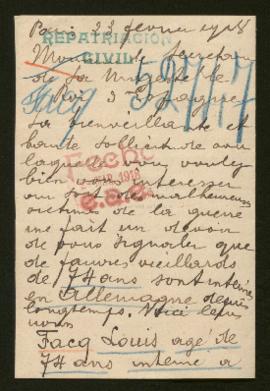 Paris, 22 février 1918
REPATRIACION
CIVIL
Monsieur le Secrétaire
de sa Majesté le
Roi d'Espagne
Facq 5
La bienveillante et
haute sollicitude avec
laquelle vous voulez
bien vous intéresser
au sort des malheureuses
1918
victimes de la guerre
me fait un devoir
de vous signaler que
de pauvres vieillards
de 74 ans sont internés
en Allemagne depuis
longtemps. Voici leurs
noms
Facq Louis agé de
74 ans interné à